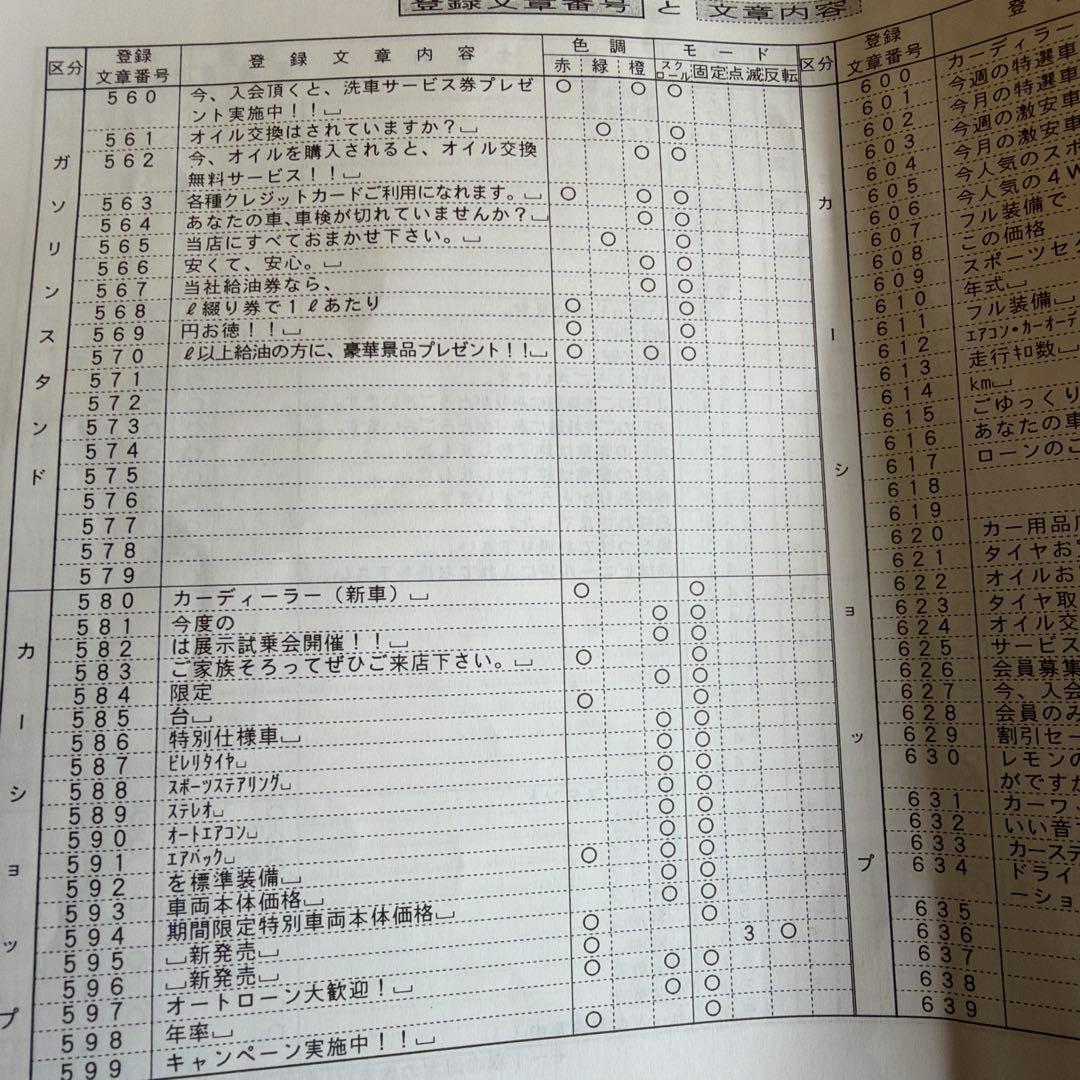 登録文章番号 と 文章内容
区分 登録文章番号 登録文章内容 色調 モード
赤 緑 橙 スクロール 固定 点滅 反転
ガソリンスタンド
560 今、入会頂くと、洗車サービス券プレゼ ○ ○ ○
ント実施中！！␣
561 オイル交換はされていますか？␣ ○ ○
562 今、オイルを購入されると、オイル交換 ○ ○
無料サービス！！␣
563 各種クレジットカードご利用になれます。␣ ○ ○ ○
564 あなたの車、車検が切れていませんか？␣ ○ ○
565 当店にすべておまかせ下さい。␣ ○ ○
566 安くて、安心。␣ ○ ○
567 当社給油券なら、 ○ ○
568 ℓ綴り券で１ℓあたり ○ ○
569 円お徳！！␣ ○ ○
570 ℓ以上給油の方に、豪華景品プレゼント！！␣ ○ ○ ○
571
572
573
574
575
576
577
578
579
カーショップ
580 カーディーラー（新車）␣
581 今度の
582 は展示試乗会開催！！␣
583 ご家族そろってぜひご来店下さい。␣
584 限定
585 台␣
586 特別仕様車␣
587 ピレリタイヤ␣
588 スポーツステアリング␣
589 ステレオ␣
590 オートエアコン␣
591 エアバック␣
592 を標準装備␣
593 車両本体価格␣
594 期間限定特別車両本体価格␣
595 ␣新発売␣
596 ␣新発売␣
597 オートローン大歓迎！␣
598 年率␣
599 キャンペーン実施中！！␣
3 ○
区分 登録文章番号 登
カーショップ
600 カーディラー
601 今週の特選車
602 今月の特選車
603 今週の激安車
604 今月の激安車
605 今人気のスポ
606 今人気の４W
607 フル装備で
608 この価格
609 スポーツセダ
610 年式␣
611 フル装備␣
612 エアコン・カーオーデ
613 走行キロ数␣
614 km␣
615 ごゆっくり
616 あなたの車
617 ローンのご
618
619
620 カー用品
621 タイヤお
622 オイルお
623 タイヤ取
624 オイル交
625 サービス
626 会員募集
627 今、入会
628 会員のみ
629 割引セー
630 レモンの
がですか
631 カーワッ
632 いい音
633 カーステ
634 ドライ
ーショ
635
636
637
638
639